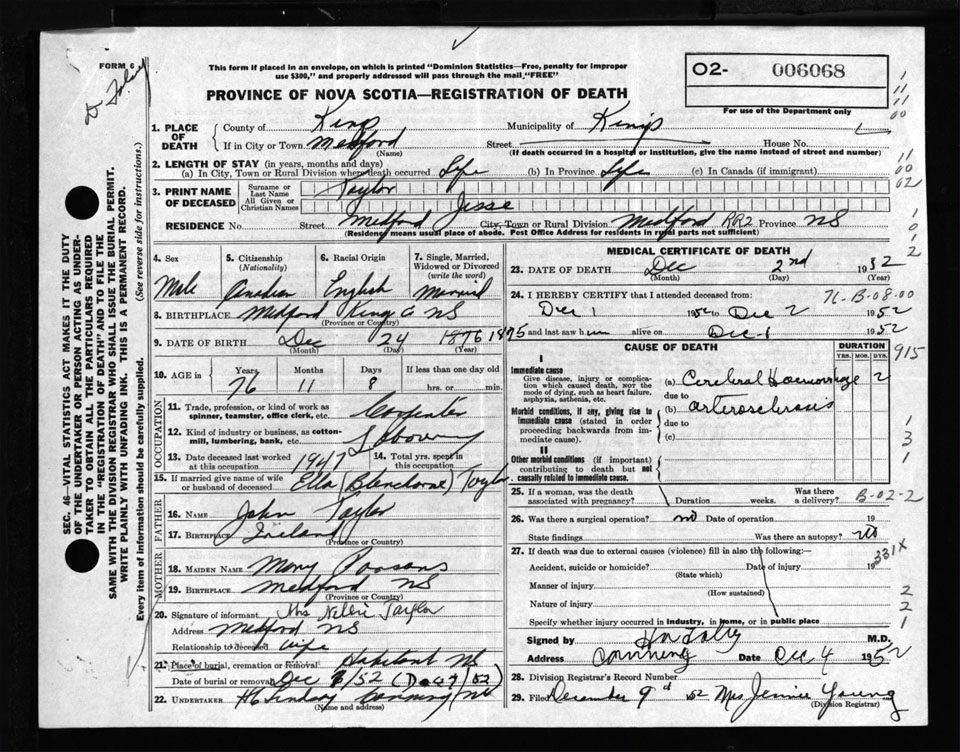 FORM 6
This form if placed in an envelope, on which is printed "Dominion Statistics—Free, penalty for improper
use $300," and properly addressed will pass through the mail "FREE"
O2- 006068
PROVINCE OF NOVA SCOTIA—REGISTRATION OF DEATH
For use of the Department only
1. PLACE OF DEATH
County of Kings Municipality of Kings
If in City or Town Medford Street House No.
(Name) (If death occurred in a hospital or institution, give the name instead of street and number)
2. LENGTH OF STAY (in years, months and days)
(a) In City, Town or Rural Division where death occurred Life (b) In Province Life (c) In Canada (if immigrant)
3. PRINT NAME OF DECEASED
Surname or Last Name Taylor
All Given or Christian Names Jesse
RESIDENCE No. Street Medford City, Town or Rural Division Medford RR2 Province NS
(Residency means usual place of abode. Post Office Address for residents in rural parts not sufficient)
4. Sex
Male
5. Citizenship (Nationality)
Canadian
6. Racial Origin
English
7. Single, Married, Widowed or Divorced (write the word)
Married
8. BIRTHPLACE Medford Kings Co NS
(Province or Country)
9. DATE OF BIRTH Dec 24 1876 1875
(Month) (Day) (Year)
10. AGE in Years Months Days If less than one day old
76 11 8 hrs. or min.
OCCUPATION
11. Trade, profession, or kind of work as spinner, teamster, office clerk, etc. Carpenter
12. Kind of industry or business, as cotton-mill, lumbering, bank, etc.
13. Date deceased last worked at this occupation 1947
14. Total yrs. spent in this occupation
15. If married give name of wife or husband of deceased Ella Taylor
FATHER
16. NAME John Taylor
17. BIRTHPLACE Ireland
(Province or Country)
MOTHER
18. MAIDEN NAME Mary Parsons
19. BIRTHPLACE Medford NS
(Province or Country)
20. Signature of informant Mrs Nellie Taylor
Address Medford NS
Relationship to deceased wife
21. Place of burial, cremation or removal Habitant NS
Date of burial or removal Dec /52
22. UNDERTAKER Canning NS
(Name and address)
MEDICAL CERTIFICATE OF DEATH
23. DATE OF DEATH Dec 2nd 1952
(Month) (Day) (Year)
24. I HEREBY CERTIFY that I attended deceased from:
71-B-08-00
Dec 1 1952 to Dec 2 1952
and last saw him alive on Dec 1 1952
CAUSE OF DEATH
DURATION
YRS. MOS. DYS.
915
I
Immediate cause
Give disease, injury or complication which caused death, NOT the mode of dying, such as heart failure, asphyxia, asthenia, etc.
(a) Cerebral Haemorrhage 2
due to
Morbid conditions, if any, giving rise to immediate cause (stated in order proceeding backwards from immediate cause).
(b) arterosclerosis
due to
(c)
II
Other morbid conditions (if important) contributing to death but not causally related to immediate cause.
25. If a woman, was the death associated with pregnancy? Duration weeks. Was there a delivery?
B-02-2
26. Was there a surgical operation? no Date of operation 19
State findings Was there an autopsy? no
27. If death was due to external causes (violence) fill in also the following:—
331X
Accident, suicide or homicide? Date of injury 19
(State which)
Manner of injury
(How sustained)
Nature of injury
Specify whether injury occurred in industry, in home, or in public place
Signed by M.D.
Address Canning Date Dec 4 1952
28. Division Registrar's Record Number
29. Filed December 9th 1952 Mrs Jennie Young
(Division Registrar)
SEC. 46—VITAL STATISTICS ACT MAKES IT THE DUTY
OF THE UNDERTAKER OR PERSON ACTING AS UNDER-
TAKER TO OBTAIN ALL THE PARTICULARS REQUIRED
IN THE "REGISTRATION OF DEATH" AND TO FILE THE
SAME WITH THE DIVISION REGISTRAR WHO SHALL ISSUE THE BURIAL PERMIT.
WRITE PLAINLY WITH UNFADING INK. THIS IS A PERMANENT RECORD.
Every item of information should be carefully supplied. (See reverse side for instructions.)